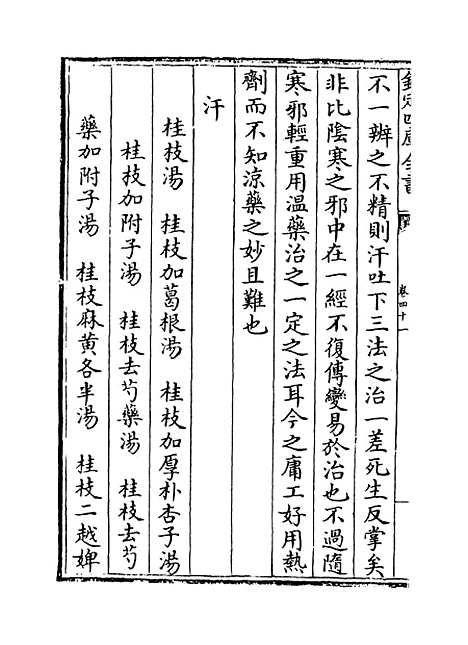 欽定四庫全書
卷四十一
不一辨之不精則汗吐下三法之治一差死生反掌矣
非比陰寒之邪中在一經不復傳變易於治也不過隨
寒邪輕重用温藥治之一定之法耳今之庸工好用熱
劑而不知涼藥之妙且難也
汗
桂枝湯　桂枝加葛根湯　桂枝加厚朴杏子湯
桂枝加附子湯　桂枝去芍藥湯　桂枝去芍
藥加附子湯　桂枝麻黄各半湯　桂枝二越婢